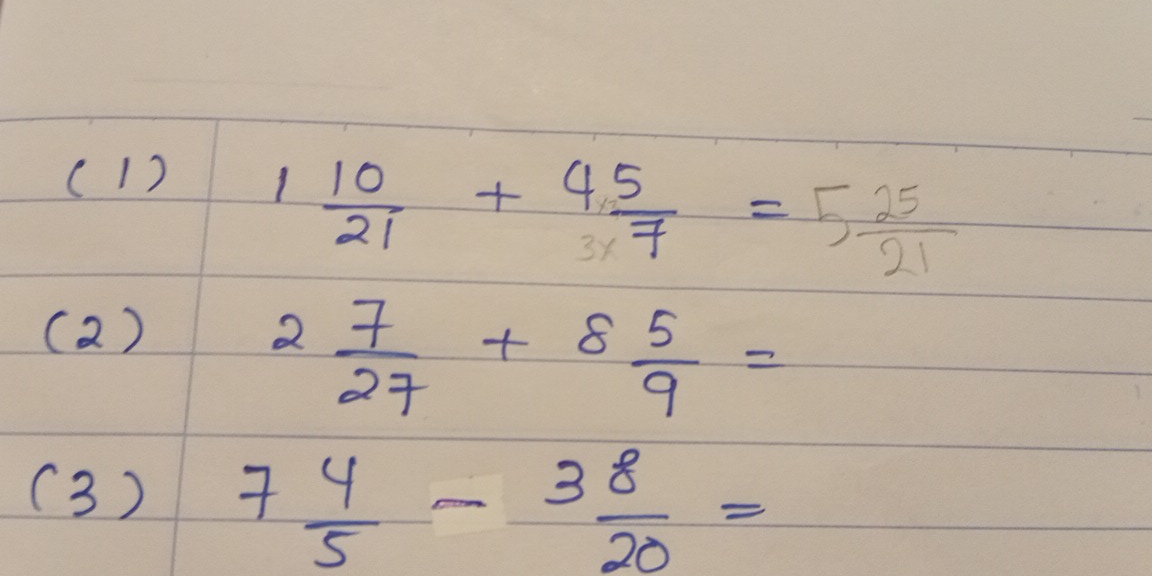 (1) 1 10/21 + 4 5/7 = 5 25/21
3x
(2) 2 7/27 + 8 5/9 =
(3) 7 4/5 - 3 8/20 =